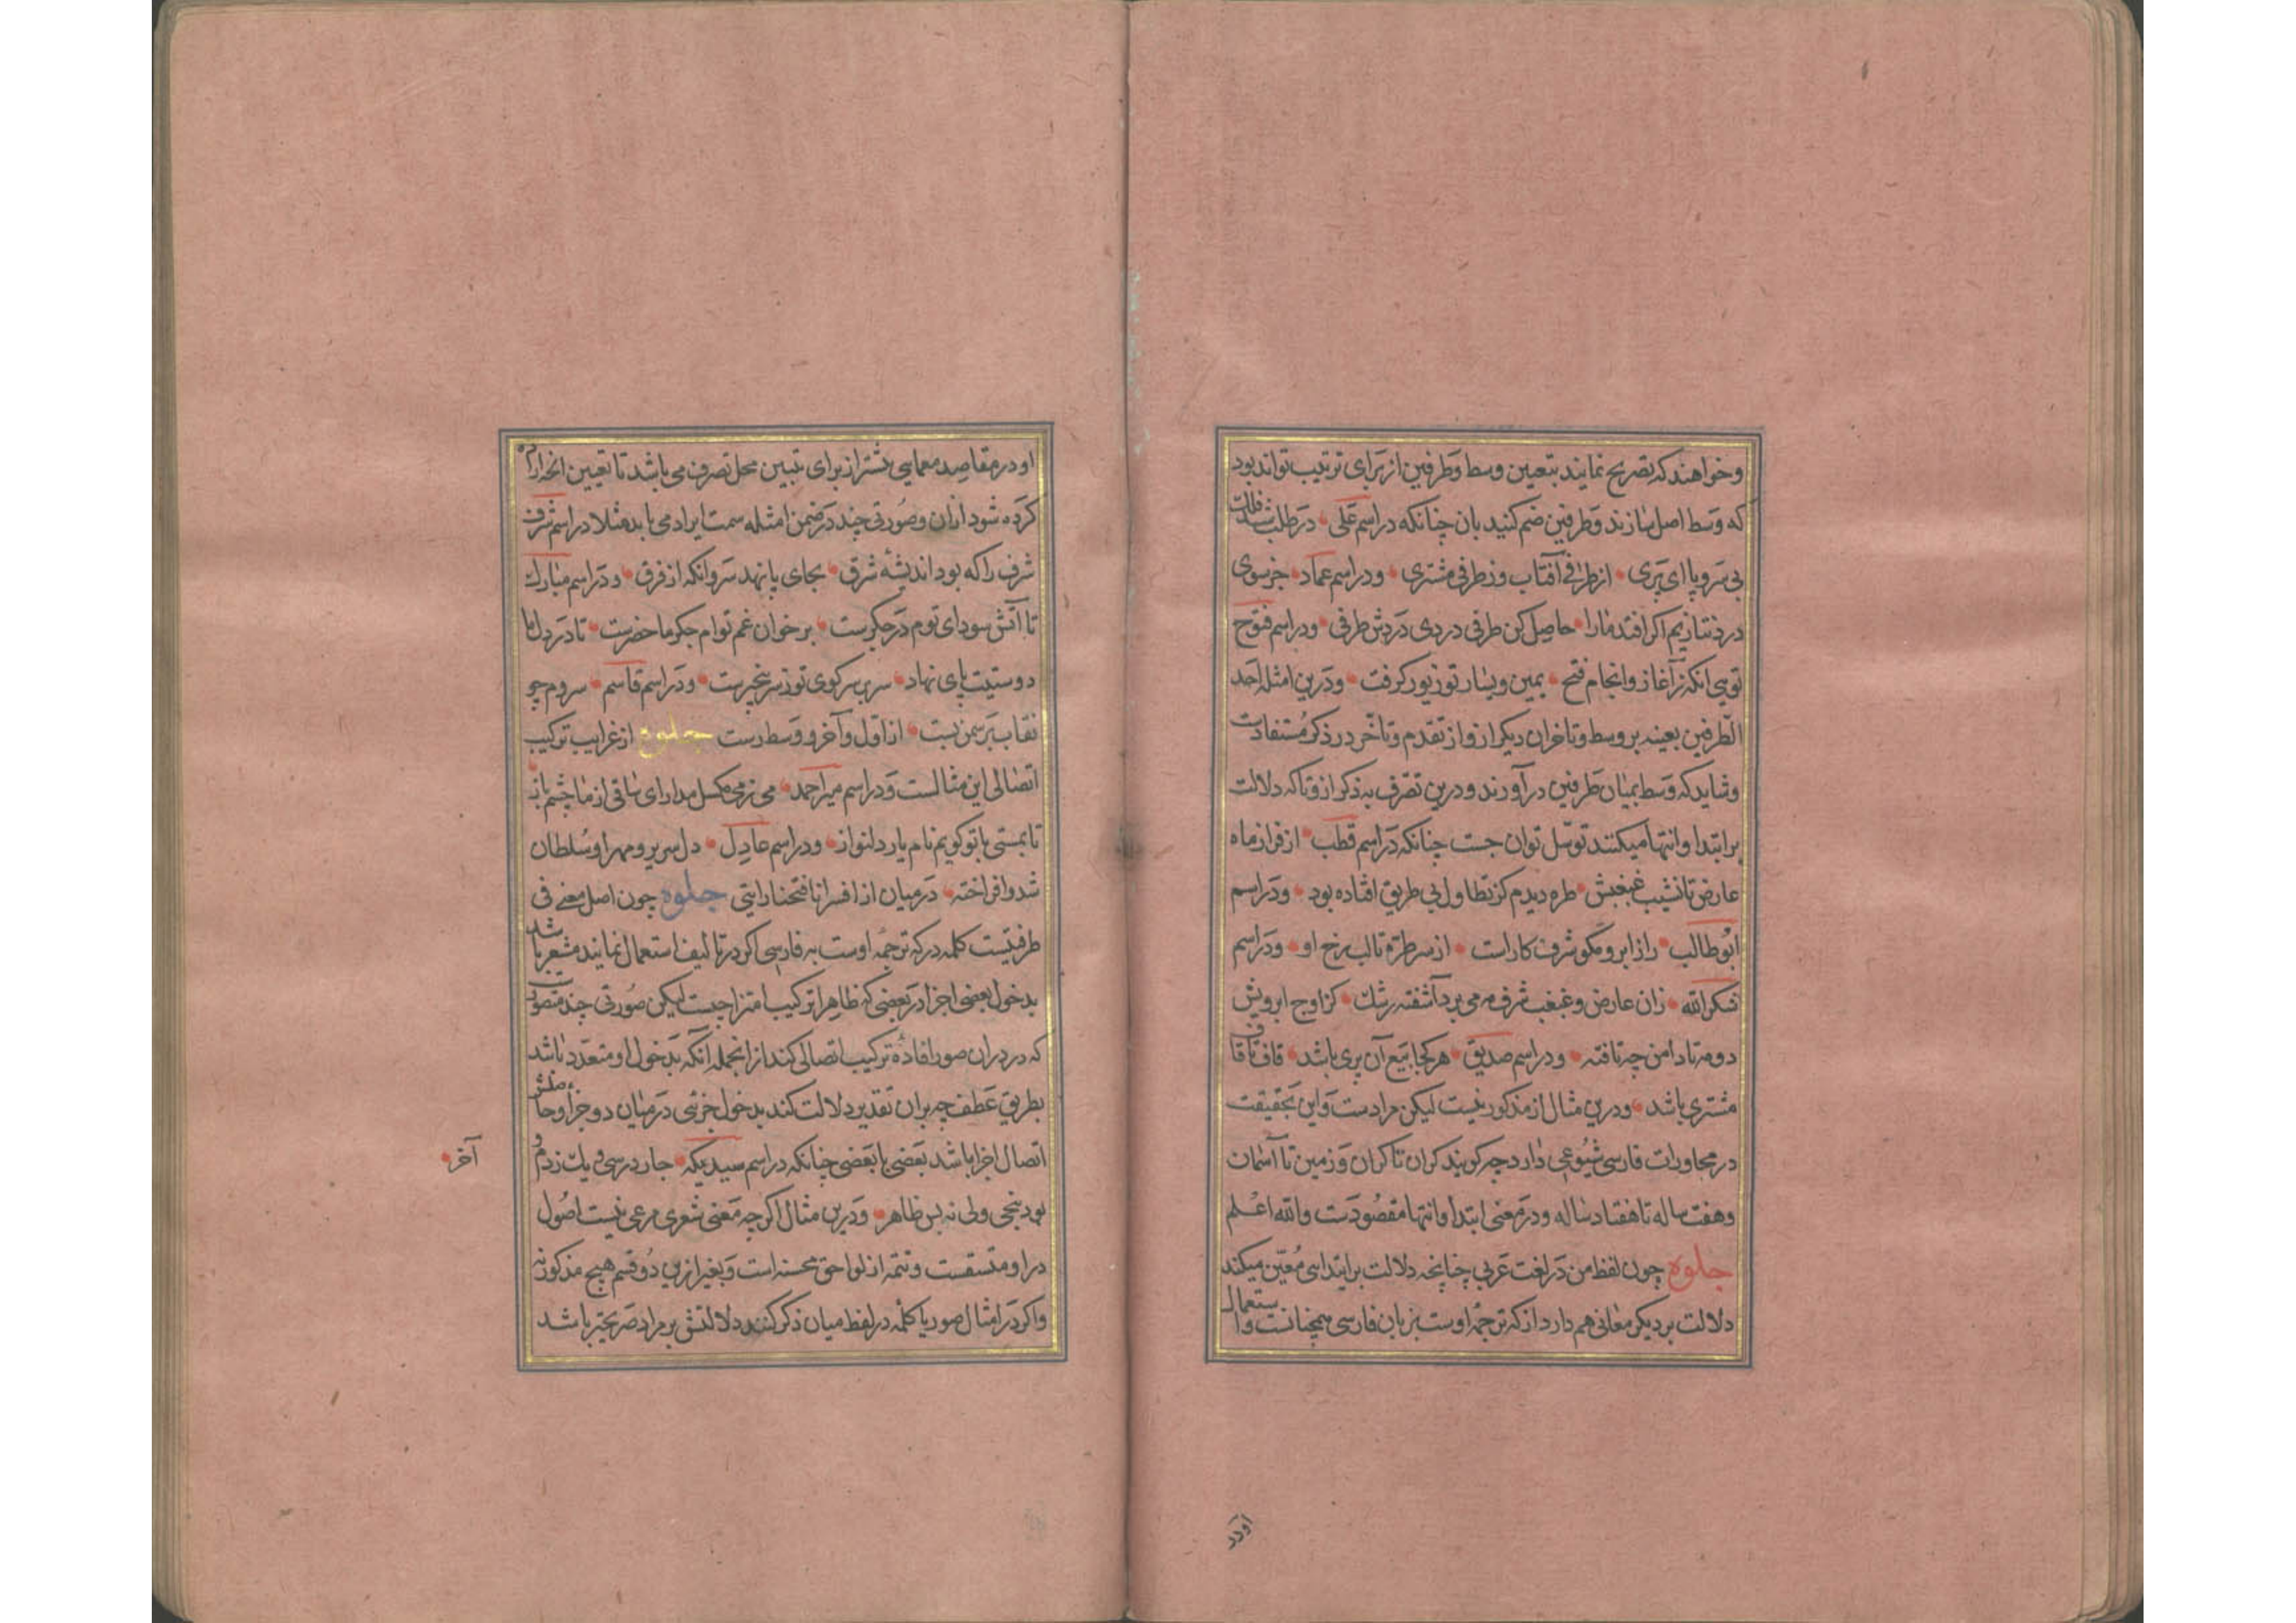 وخواهند که تصریح نمایند بتعیین وسط وطرفین از برای ترتیب تواند بود
که وسط اصل سازند وطرفین ضم کنند بان چنانکه در اسم علی در طلب
بی سر و پا ای پری از طرفی آفتاب وز طرفی مشتری ودر اسم عماد جز سوی
درد نتازیم اگر افتد مارا حاصل کن طرفی دردی دردش طرفی ودر اسم فتوح
تویی آنکه ز آغاز وانجام فتح یمین ویسار تو زیور گرفت ودرین امثله احد
الطرفین بعینه بر وسط وتاخر آن دیگر ازو از تقدم وتاخر در ذکر مستفادست
وشاید که وسط بمیان طرفین در آورند ودرین تصرف به ذکر از وتا که دلالت
بر ابتدا وانتها میکنند توسل توان جست چنانکه در اسم قطب از فراز ماه
عارض تا نشیب غبغبش طره دیدم کز تطاول بی طریق افتاده بود ودر اسم
ابوطالب راز ابرو مگو شرف کاراست از سر طره تا لب رخ او ودر اسم
شکرالله زان عارض وغبغب شرف مه می برد آشفته رشک کز اوج ابرویش
دو مه تا دامن چه تافته ودر اسم صدیق هر کجا بیع آن پری باشد قاف تا قاف
مشتری باشد ودرین مثال از مذکور نیست لیکن مرادست واین بحقیقت
در محاورات فارسی شیوعی دارد چه گویند کران تا کران وزمین تا آسمان
وهفت ساله تا هفتاد ساله ودر معنی ابتدا وانتها مقصودست والله اعلم
جلوه چون لفظ من در لغت عربی چنانچه دلالت بر ابتدای معین میکند
دلالت بر دیگر معانی هم دارد از که ترجمه اوست بزبان فارسی همچنانست واستعمال
او در
او در مقاصد معمایی بیشتر از برای تبیین محل تصرف می باشد تا تعیین
کرده شود ازان وصورتی چند در ضمن امثله سمت ایراد می یابد مثلا در اسم شرف
شرف را که بود اندیشه شرق بجای پا نهد سر وانکه از فرق ودر اسم مبارک
تا آتش سودای توم در جگرست بر خوان غم توام جگر ماحضرست تا در دل ما
دوستیت پای نهاد سر بر سر کوی تو ز سر بیخبرست ودر اسم قاسم سروم چو
نقاب بر سمن بست از اول وآخر ووسط رست جلوه از غرایب ترکیب
اتصالی این مثالست ودر اسم میر احمد می ز می مگسل مدار ای ساقی از ما چشم باز
تا بمستی با تو گویم نام یار دلنواز ودر اسم عادل دل سریر ومهر او سلطان
شد وافراخته در میان از افسر انا فتحنا رایتی جلوه چون اصل معنی فی
ظرفیست کلمه در که ترجمه اوست به فارسی اگر در تالیف استعمال نمایند مشعر باشد
بدخول بعضی اجزا در بعضی که ظاهرا ترکیب امتزاجیست لیکن صورتی چند متصورست
که در دران صور افاده ترکیب اتصالی کند از انجمله آنکه بدخول او متعدد باشد
بطریق عطف چه بران تقدیر دلالت کند بدخول جزئی در میان دو جزء
اتصال اجزا باشد بعضی با بعضی چنانکه در اسم سیدبیکه چار در سی و یک زدم و
آخر
بود پنجی ولی نه بس ظاهر ودرین مثال اگر چه معنی شعری مرعی نیست اصول
در او متسقست وتتمه از لواحق محسنه است وبغیر ازین دو قسم هیچ مذکور نه
واگر در امثال صور یا کلمه در لفظ میان ذکر کنند دلالتش بر مراد صریحتر باشد